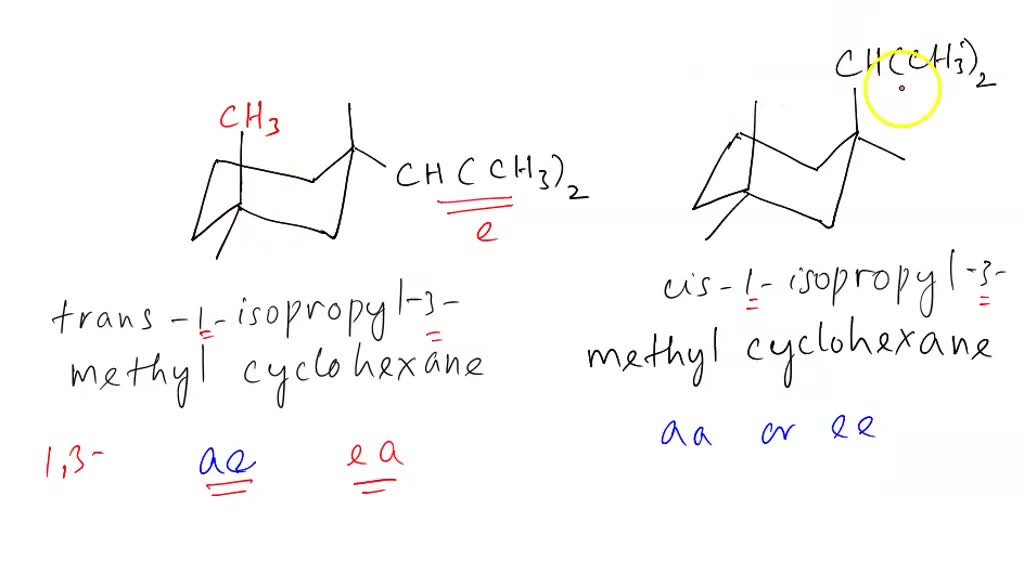 CH3
CH(CH3)2
e
trans-1-isopropyl-3-
methyl cyclohexane
1,3- ae ea
CH(CH3)2
cis-1-isopropyl-3-
methyl cyclohexane
aa or ee